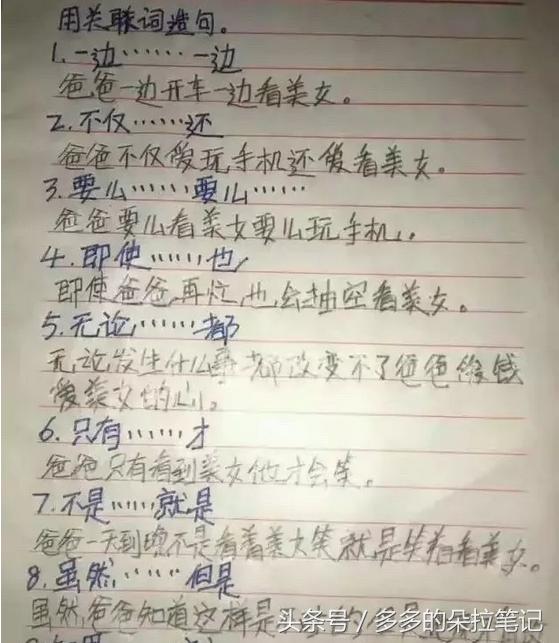 用关联词造句。
1.一边……一边
爸爸一边开车一边看美女。
2.不仅……还
爸爸不仅爱玩手机还爱看美女。
3.要么……要么……
爸爸要么看美女要么玩手机。
4.即使……也
即使爸爸再忙,也会抽空看美女。
5.无论……都
无论发生什么事都改变不了爸爸爱钱
爱美女的心。
6.只有……才
爸爸只有看到美女他才会笑。
7.不是……就是
爸爸一天到晚不是看着美女笑就是笑着看美女。
8.虽然……但是
虽然爸爸知道这样是
头条号 / 多多的朵拉笔记